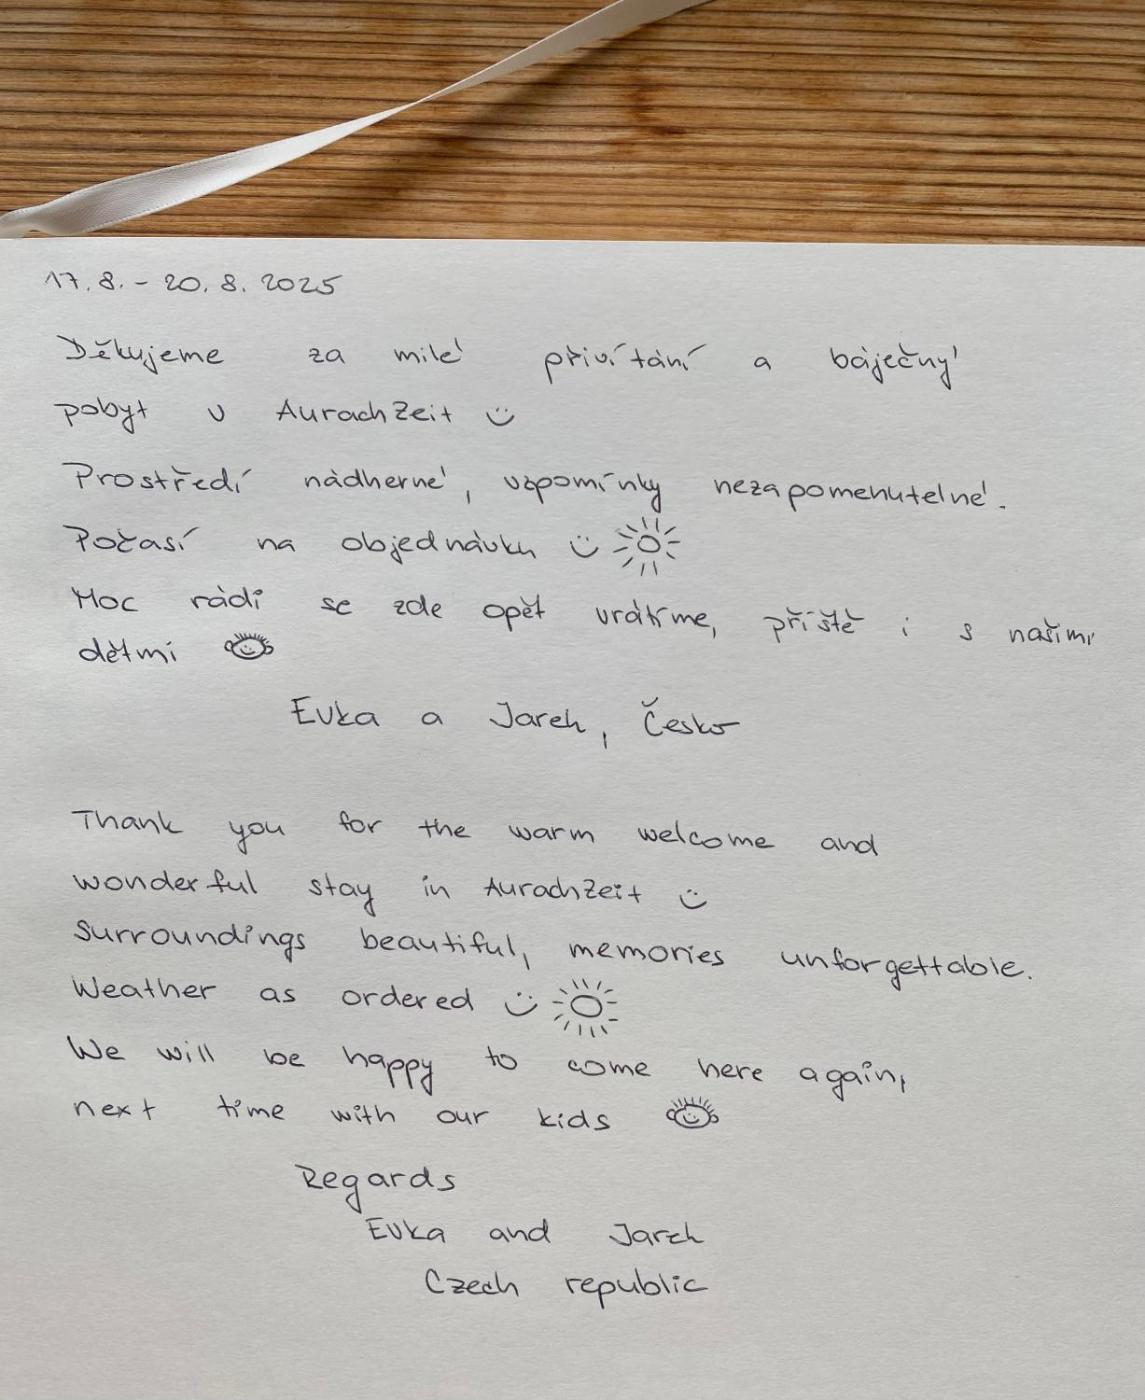 17. 8. - 20. 8. 2025
Děkujeme za milé přivítání a báječný
pobyt v AurachZeit :)
Prostředí nádherné, vzpomínky nezapomenutelné.
Počasí na objednávku :)
Moc rádi se zde opět vrátíme, příště i s našimi
dětmi
Evka a Jarek, Česko
Thank you for the warm welcome and
wonderful stay in AurachZeit :)
Surroundings beautiful, memories unforgettable.
Weather as ordered :)
We will be happy to come here again,
next time with our kids
Regards
Evka and Jarek
Czech republic